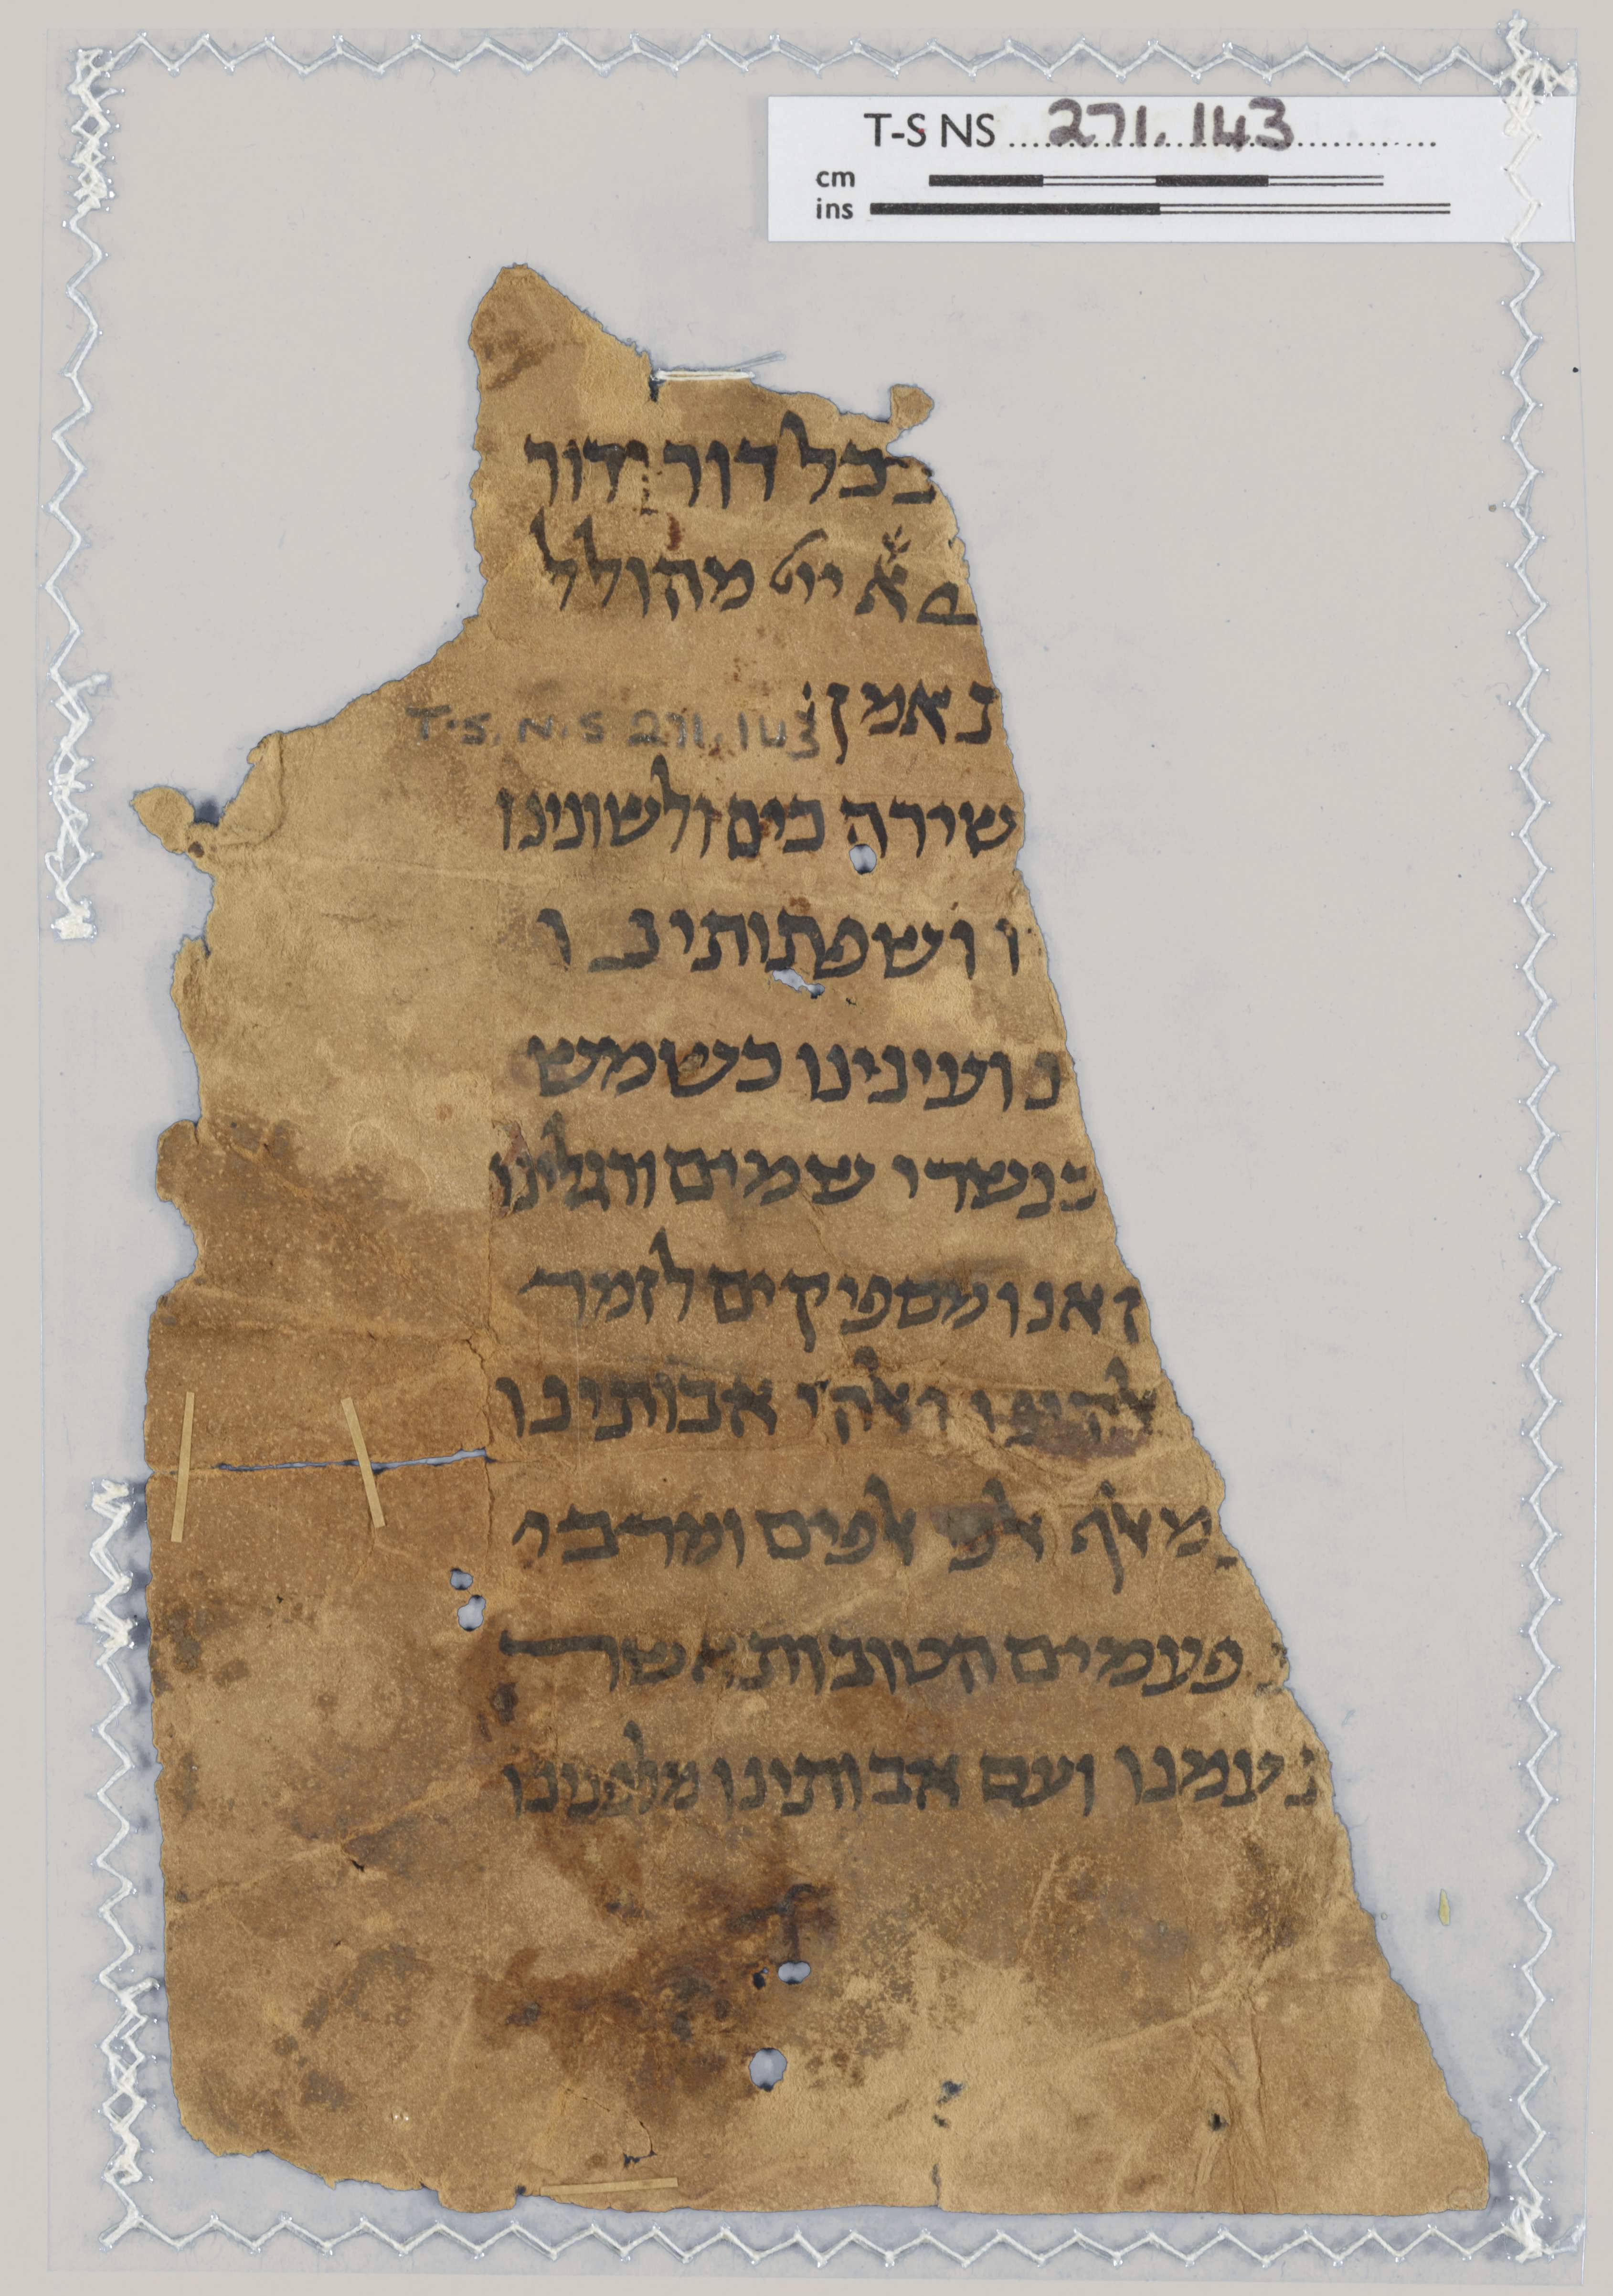 T-S NS 271.143
cm
ins
בכל דור ודור
מהולל
נאמן
T-S. N.S 271.143
שירה כים ולשונינו
ו ושפתותינו
נו ועינינו כשמש
כנשרי שמים ורגלינו
אנו מספיקים לזמר
ואלהי אבותינו
מאלף אלפי אלפים ומרבי
פעמים הטובות אשר
עמנו ועם אבותינו מלפננו